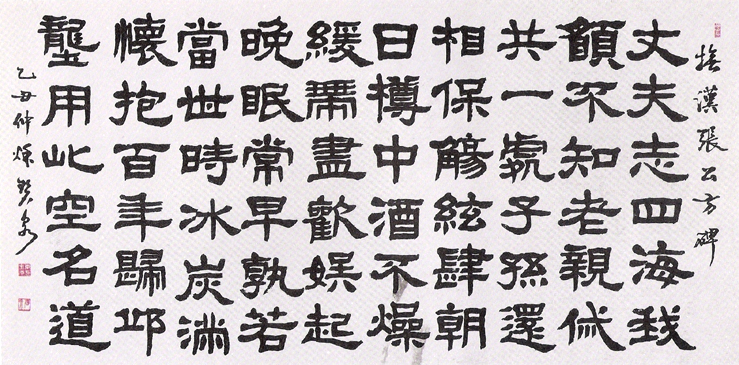 橅漢張公方碑
丈夫志四海我
願不知老親戚
共一處子孫還
相保觴絃肆朝
日樽中酒不燥
緩帶盡歡娛起
晚眠常早孰若
當世時冰炭滿
懷抱百年歸邱
壟用此空名道
乙丑仲